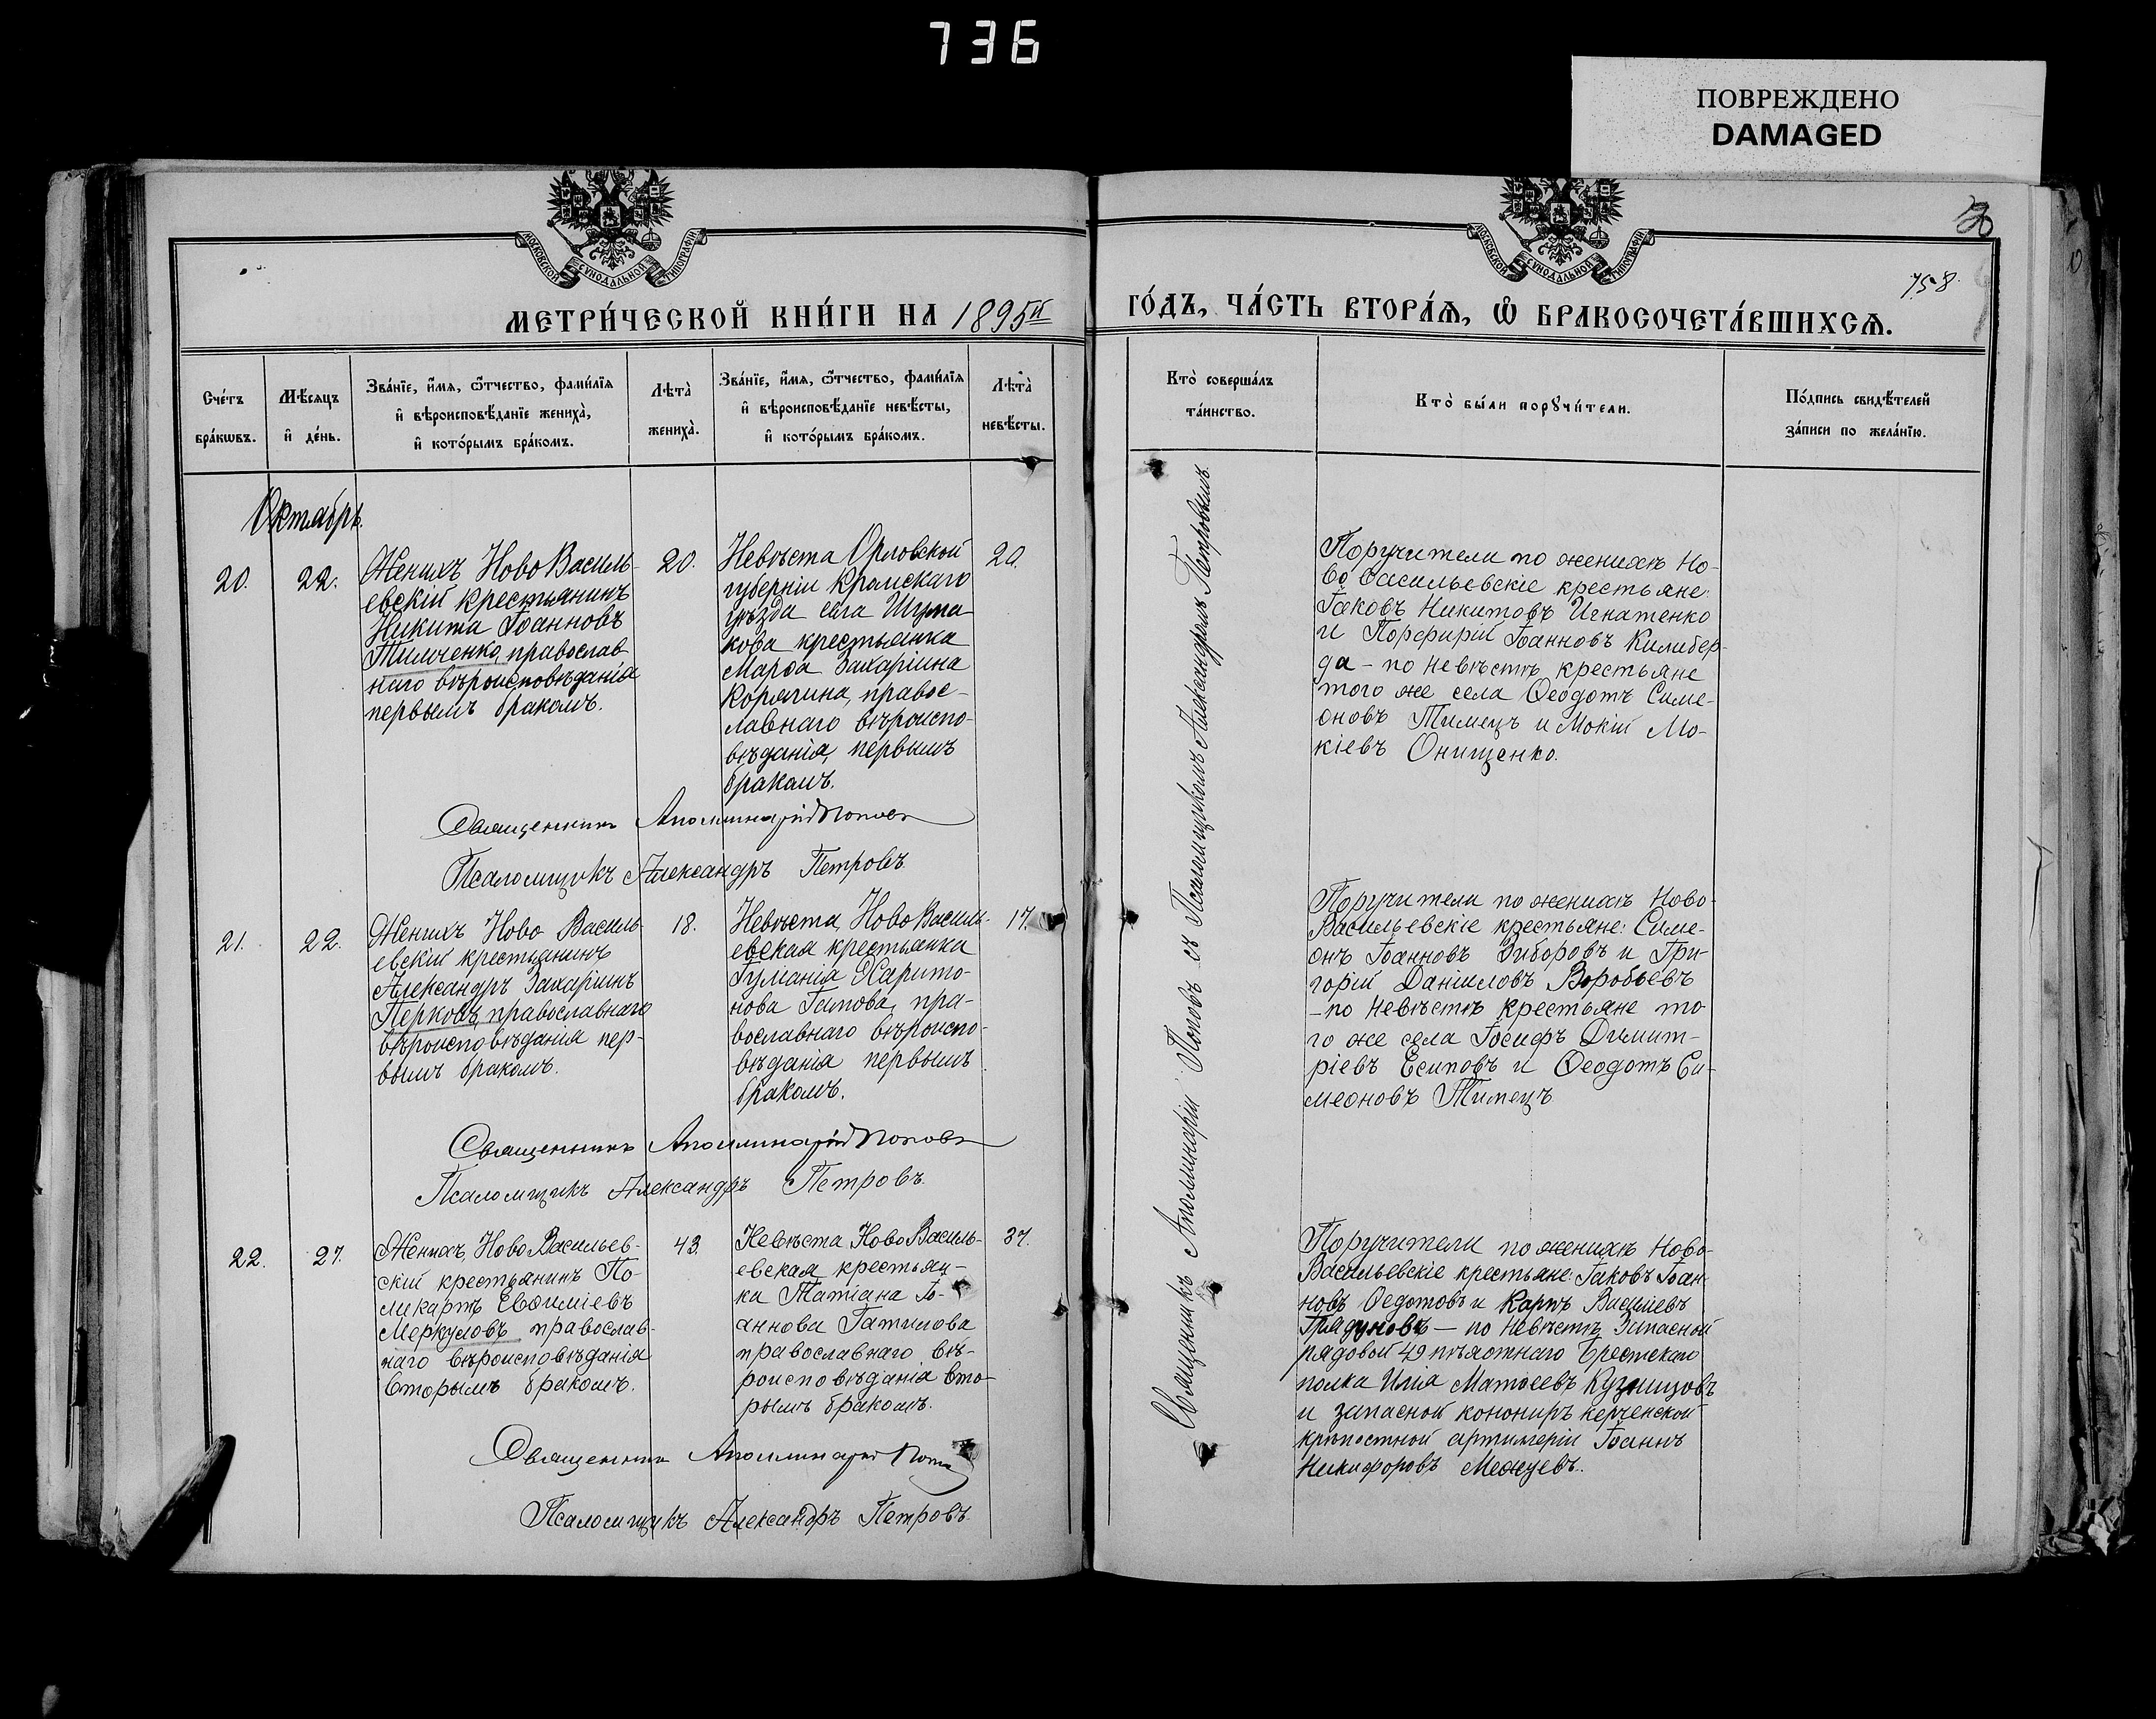 736
ПОВРЕЖДЕНО
DAMAGED
МОСКОВСКОЙ СУНОДАЛЬНОЙ ТИПОГРАФІИ
МОСКОВСКОЙ СУНОДАЛЬНОЙ ТИПОГРАФІИ
758.
МЕТРИ́ЧЕСКОЙ КНИ́ГИ НА 1895й
ГО́ДЪ, ЧА́СТЬ ВТОРА́Ѧ, Ѡ҆ БРАКОСОЧЕТА́ВШИХСѦ.
Сче́тъ
бра́кѡвъ.
Мѣ́сяцъ
и҆ де́нь.
Зва́нїе, и҆́мя, ѻ҆́тчество, фами́лїя
и҆ вѣроисповѣ́данїе жениха̀,
и҆ кото́рымъ бра́комъ.
Лѣта̀
жениха̀.
Зва́нїе, и҆́мя, ѻ҆́тчество, фами́лїя
и҆ вѣроисповѣ́данїе невѣ́сты,
и҆ кото́рымъ бра́комъ.
Лѣта̀
невѣ́сты.
Кто̀ соверша́лъ
та́инство.
Кто̀ бы́ли порꙋчи́тели.
По́дпись свидѣ́телей
за́писи по жела́нїю.
Октябрь.
20.
22.
Женихъ Ново Василь-
евскій крестьянинъ
Никита Іоанновъ
Тимченко, православ
наго вѣроисповѣданія
первымъ бракомъ.
20.
Невѣста Орловской
губерніи Кромскаго
уѣзда села Шума
кова крестьянка
Марѳа Захаріина
Корягина, правос-
лавнаго вѣроиспо-
вѣданія, первымъ
бракомъ.
20.
Поручители по женихѣ Но-
во Васильевскіе крестьяне:
Іаковъ Никитовъ Игнатенко
и Порфирій Іоанновъ Килибер-
да - по невѣстѣ, крестьяне
того же села Ѳеодотъ Симе-
оновъ Тимецъ и Мокій Мо-
кіевъ Онищенко.
Священникъ Аполлинарій Поповъ
Псаломщикъ Александръ Петровъ.
21.
22.
Женихъ Ново Василь
евскій крестьянинъ
Александръ Захаріинъ
Перковъ, православнаго
вѣроисповѣданія пер-
вымъ бракомъ.
18.
Невѣста, Ново Василь-
евская крестьянка
Гуманія Харито-
нова Гамова, пра-
вославнаго вѣроиспо-
вѣданія первымъ
бракомъ.
17.
Поручители по женихѣ Ново-
Васильевскіе крестьяне: Симе-
онъ Іоанновъ Зиборовъ и Гри-
горій Даніиловъ Воробьевъ
- по невѣстѣ крестьяне то-
го же села Іосифъ Димит-
ріевъ Есиповъ и Ѳеодотъ Си-
меоновъ Тимецъ
Священникъ Аполлинарій Поповъ
Псаломщикъ Александръ Петровъ.
22.
27.
Женихъ, Ново Васильев-
скій крестьянинъ По-
ликарпъ Евѳиміевъ
Меркуловъ православ-
наго вѣроисповѣданія
вторымъ бракомъ.
43.
Невѣста Ново Василь-
евская крестьян-
ка Татіана Іо-
аннова Гатилова
православнаго вѣ-
роисповѣданія вто-
рымъ бракомъ.
37.
Поручители по женихѣ Ново-
Васильевскіе крестьяне: Іаковъ Іоан-
новъ Ѳедотовъ и Карпъ Василіевъ
Грядуновъ - по невѣстѣ, Запасной
рядовой 49 пѣхотнаго Брестскаго
полка Илія Матѳеевъ Кузнецовъ
и запасной кононирь керченской
крѣпостной артилеріи Іоаннъ
Никифоровъ
Священникъ Аполлинарій
Псаломщикъ Александръ Петровъ.
Священникъ Аполлинарій Поповъ съ Псаломщикомъ Александромъ Петровымъ.